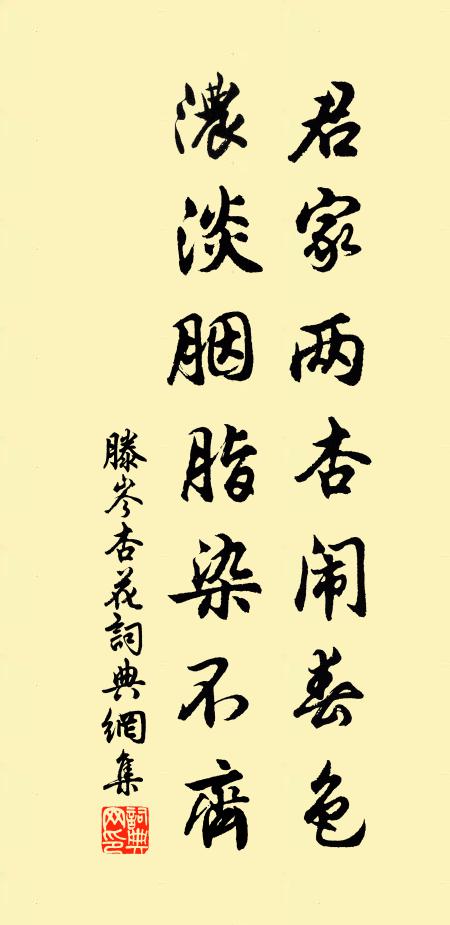 君家两杏闹春色
濃淡胭脂染不齊
滕岑杏花詞典網集
詞典网印